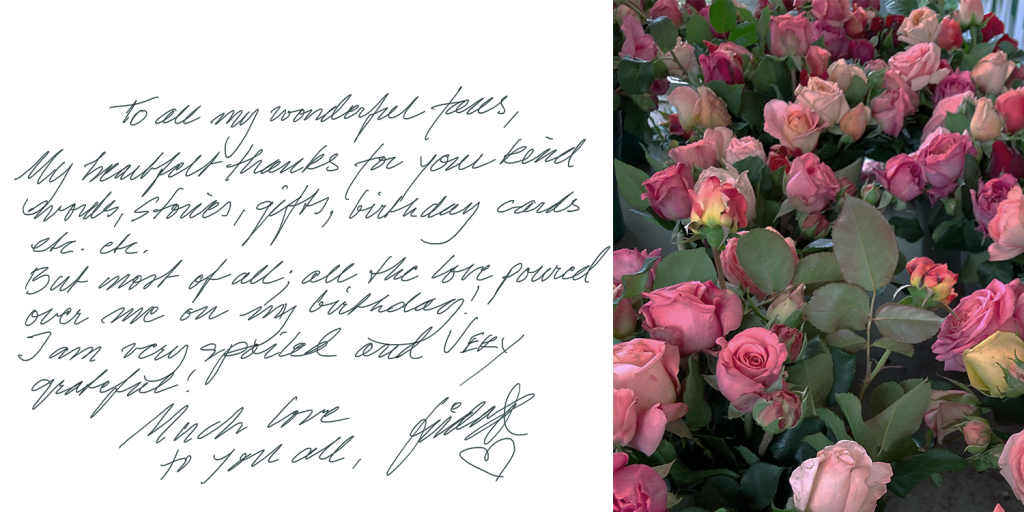 To all my wonderful fans,
My heartfelt thanks for your kind
words, stories, gifts, birthday cards
etc. etc.
But most of all; all the love poured
over me on my birthday!
I am very spoiled and VERY
grateful!
Much love
to you all,